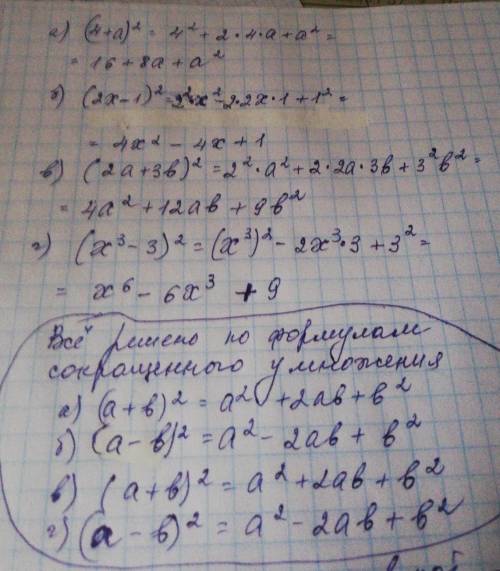 а) (4+a)² = 4² + 2·4·a + a² =
= 16 + 8a + a²
б) (2x-1)² = 2²x² - 2·2x·1 + 1² =
= 4x² - 4x + 1
в) (2a+3в)² = 2²·a² + 2·2a·3в + 3²в² =
= 4a² + 12aв + 9в²
г) (x³ - 3)² = (x³)² - 2x³·3 + 3² =
= x⁶ - 6x³ + 9
Всё решено по формулам
сокращенного умножения
а) (a+в)² = a² + 2aв + в²
б) (a-в)² = a² - 2aв + в²
в) (a+в)² = a² + 2aв + в²
г) (a-в)² = a² - 2aв + в²